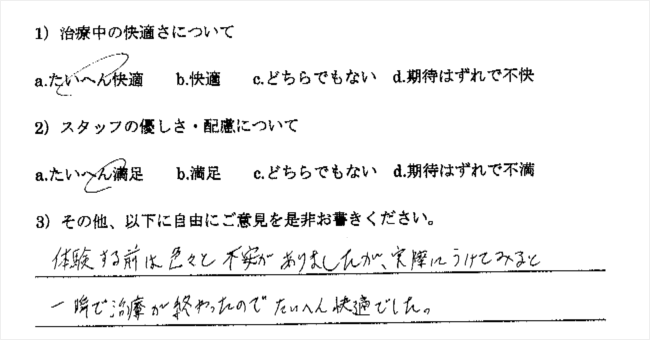 1) 治療中の快適さについて
a.たいへん快適 b.快適 c.どちらでもない d.期待はずれで不快
2) スタッフの優しさ・配慮について
a.たいへん満足 b.満足 c.どちらでもない d.期待はずれで不満
3) その他、以下に自由にご意見を是非お書きください。
体験する前は色々と不安がありましたが、実際にうけてみると
一瞬で治療が終わったのでたいへん快適でした。